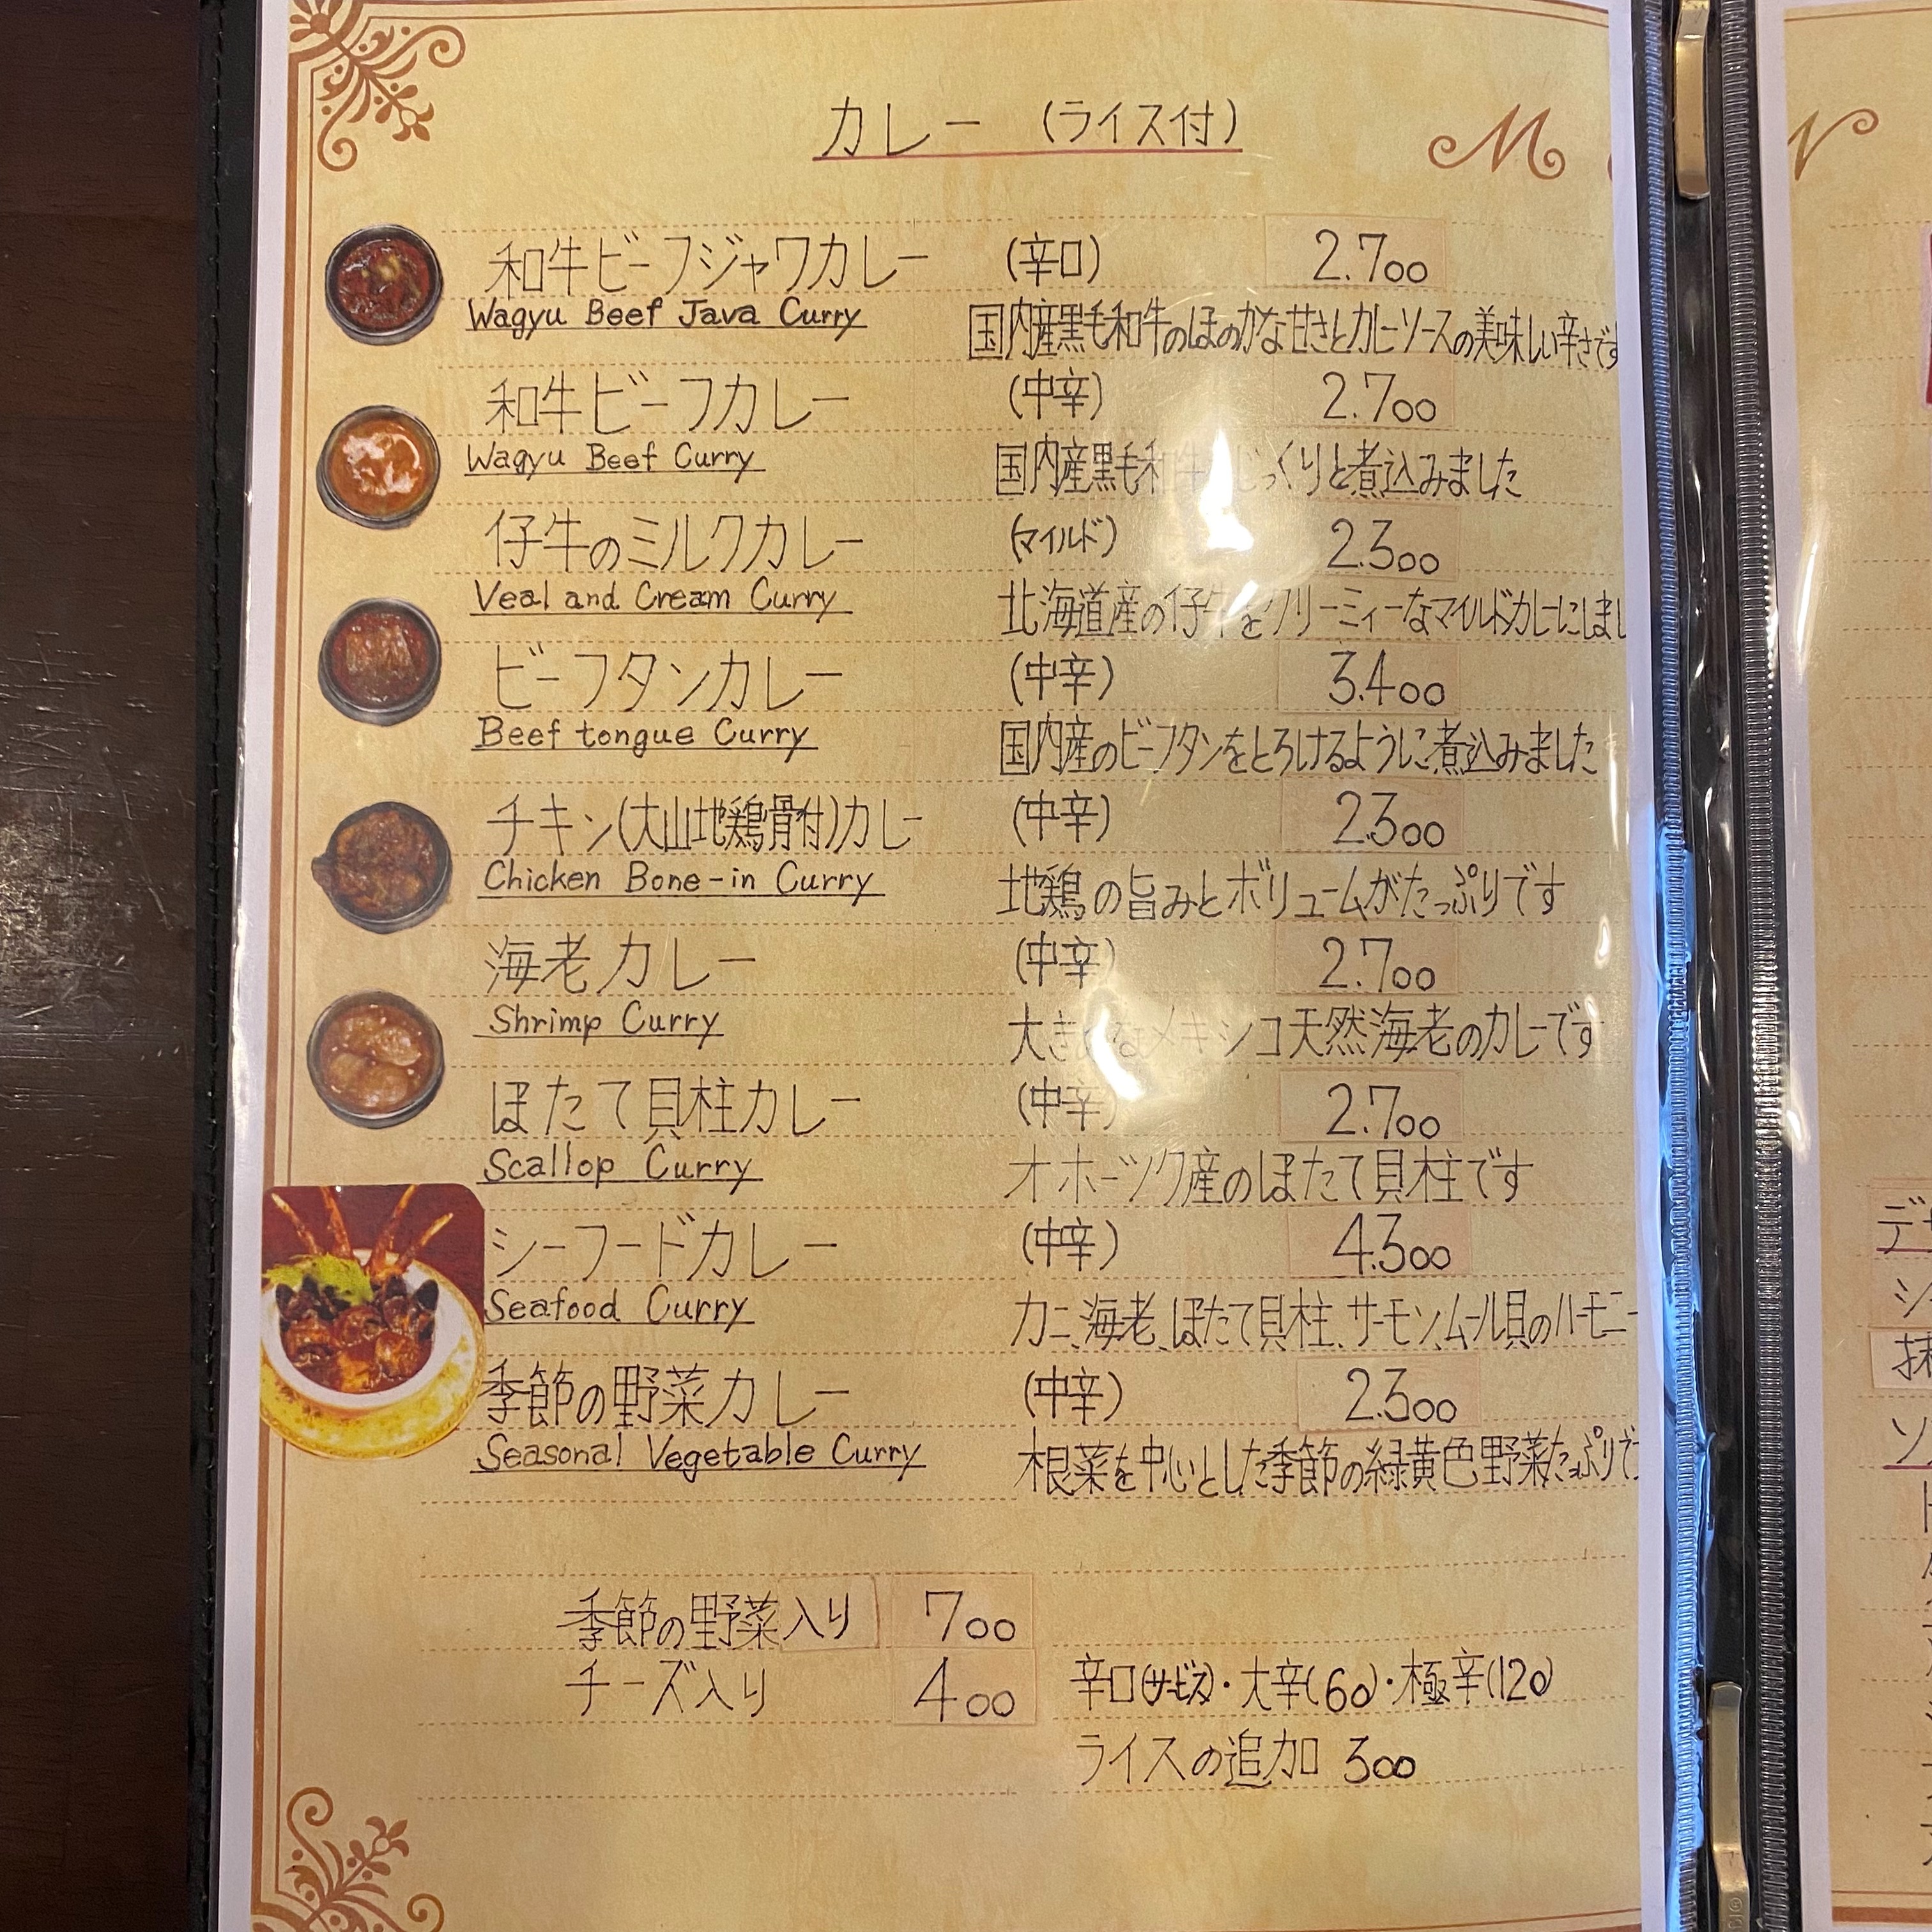 カレー (ライス付)
M
N
和牛ビーフジャワカレー (辛口) 2.700
Wagyu Beef Java Curry 国内産黒毛和牛のほのかな甘さとカレーソースの美味しい辛さです
和牛ビーフカレー (中辛) 2.700
Wagyu Beef Curry 国内産黒毛和牛 じっくりと煮込みました
仔牛のミルクカレー (マイルド) 2.300
Veal and Cream Curry 北海道産の仔牛をクリーミィーなマイルドカレーにしまし
ビーフタンカレー (中辛) 3.400
Beef tongue Curry 国内産のビーフタンをとろけるように煮込みました
チキン(大山地鶏骨付)カレー (中辛) 2.300
Chicken Bone-in Curry 地鶏の旨みとボリュームがたっぷりです
海老カレー (中辛) 2.700
Shrimp Curry 大きなメキシコ天然海老のカレーです
ほたて貝柱カレー (中辛) 2.700
Scallop Curry オホーツク産のほたて貝柱です
シーフードカレー (中辛) 4.300
Seafood Curry カニ、海老、ほたて貝柱、サーモン、ムール貝のハーモニー
季節の野菜カレー (中辛) 2.300
Seasonal Vegetable Curry 根菜を中心とした季節の緑黄色野菜たっぷりで
季節の野菜入り 700
チーズ入り 400 辛口(サービス)・大辛(60)・極辛(120)
ライスの追加 300